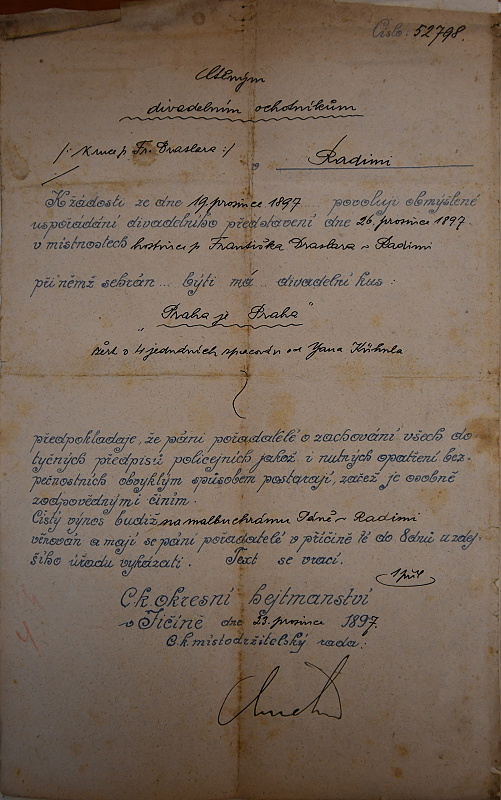 Číslo. 52798.
Ctěným
divadelním ochotníkům
/: K ruce p. Fr. Draslara :/
v Radimi
K žádosti ze dne 19. prosince 1897 povoluji obmýšlené
uspořádání divadelního představení dne 26. prosince 1897.
v místnostech hostince p. Františka Draslara v Radimi
při němž sehrán ... býti má ... divadelní kus :
„Praha je Praha"
v 4 jednáních od Jana Kühnla
předpokládaje, že páni pořadatelé o zachování všech do
tyčných předpisů policejních jakož i nutných opatření bez-
pečnostních obvyklým spůsobem postarají, začež je osobně
zodpovědnými činím.
Čistý výnos budiž na malbu chrámu Páně v Radimi
věnován a mají se páni pořadatelé v příčině té do 8 dnů u zdej-
šího úřadu vykázati. Text se vrací.
1 příl
C.k. okresní hejtmanství
v Jičíně dne 23. prosince 1897.
C.k. místodržitelský rada: